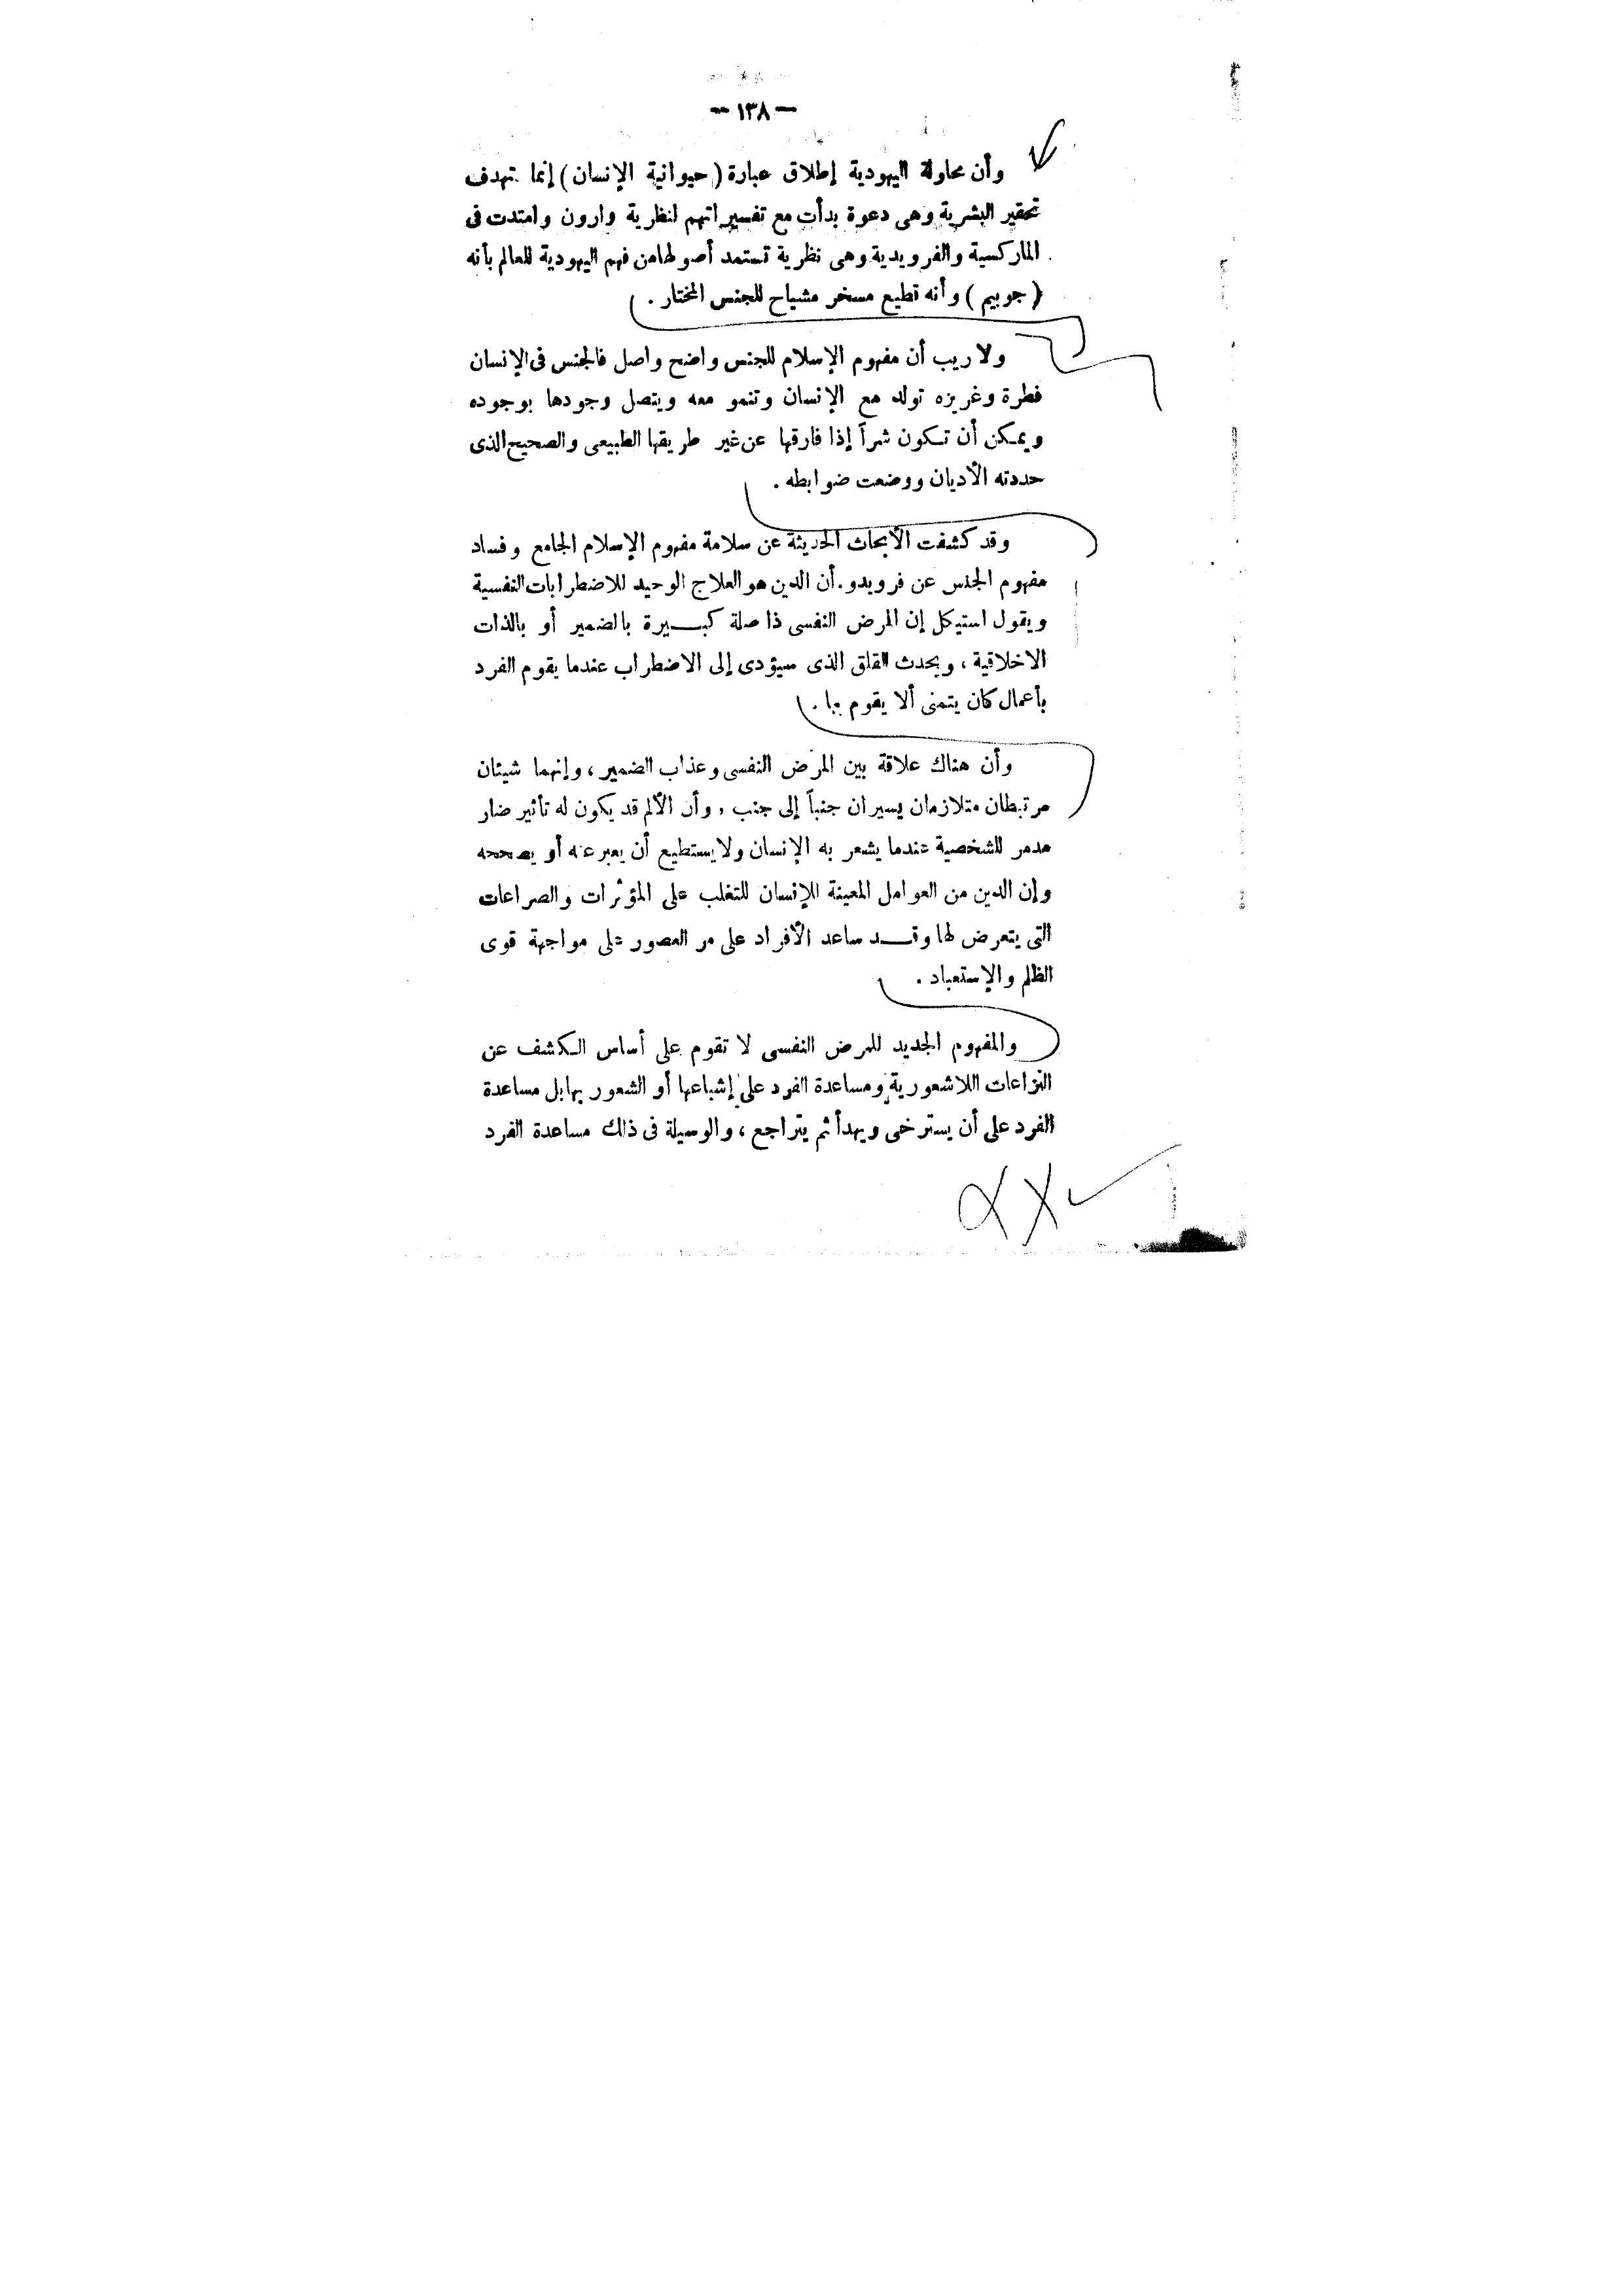 — ١٣٨ —
وأن محاولة اليهودية إطلاق عبارة ( حيوانية الإنسان ) إنما تهدف
تحقير البشرية وهى دعوة بدأت مع تفسيراتهم لنظرية وارون وامتدت فى
الماركسية والفرويدية وهى نظرية تستمد أصولها من فهم اليهودية للعالم بأنه
( جوييم ) وأنه قطيع مسخر مشياح للجنس المختار .
ولا ريب أن مفهوم الإسلام للجنس واضح واصل فالجنس فى الإنسان
فطرة وغريزه تولد مع الإنسان وتنمو معه ويتصل وجودها بوجوده
ويمكن أن تكون شراً إذا فارقها عن غير طريقها الطبيعى والصحيح الذى
حددته الأديان ووضعت ضوابطه .
وقد كشفت الأبحاث الحديثة عن سلامة مفهوم الإسلام الجامع وفساد
مفهوم الجنس عن فرويدو . أن الدين هو العلاج الوحيد للاضطرابات النفسية
ويقول استيكل إن المرض النفسى ذا صلة كبــيرة بالضمير أو بالذات
الاخلاقية ، ويحدث القلق الذى سيؤدى إلى الاضطراب عندما يقوم الفرد
بأعمال كان يتمنى ألا يقوم بها .
وأن هناك علاقة بين المرض النفسى وعذاب الضمير ، وإنهما شيئان
مرتبطان متلازمان يسيران جنباً إلى جنب ، وأن الألم قد يكون له تأثير ضار
مدمر للشخصية عندما يشعر به الإنسان ولا يستطيع أن يعبر عنه أو يصححه
وإن الدين من العوامل المعينة للإنسان للتغلب على المؤثرات والصراعات
التى يتعرض لها وقــد ساعد الأفراد على مر العصور على مواجهة قوى
الظلم والإستعباد .
والمفهوم الجديد للمرض النفسى لا تقوم على أساس الكشف عن
النزاعات اللاشعورية ومساعدة الفرد على إشباعها أو الشعور بها بل مساعدة
الفرد على أن يسترخى ويهدأ ثم يتراجع ، والوسيلة فى ذلك مساعدة الفرد